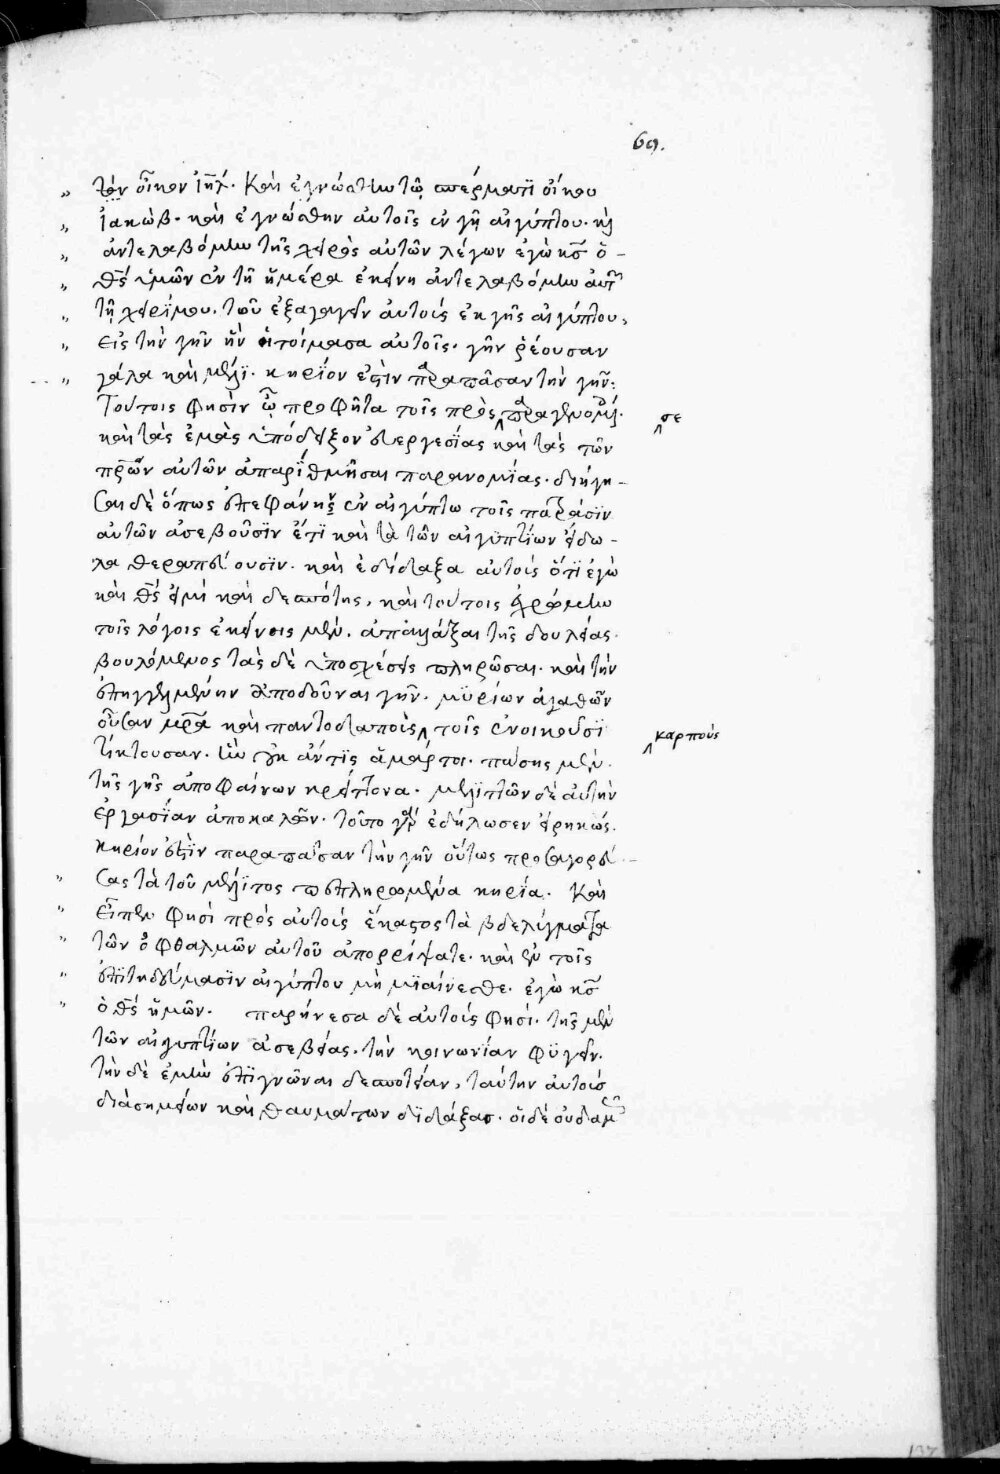 69.
„ τὸν οἶκον ἰη̄λ. Καὶ ἐγνώσθην τῷ σπέρματι οἴκου
„ ἰακώβ. καὶ ἐγνώσθην αὐτοῖς ἐν γῆ αἰγύπτου. κὶ
„ ἀντελαβόμην τῆς χειρὸς αὐτῶν λέγων ἐγὼ κ̄ς ὁ
„ θ̄ς ὑμῶν ἐν τῆ ἡμέρα ἐκείνη ἀντελαβόμην αὐτ
„ τῆ χειρί μου. τοῦ ἐξαγαγεῖν αὐτοὺς ἐκ γῆς αἰγύπτου,
„ εἰς τὴν γῆν ἣν ἡτοίμασα αὐτοῖς. γῆν ῥέουσαν
„ γάλα καὶ μέλι. κηρίον ἐστὶν παρὰ πᾶσαν τὴν γῆν:
Τούτοις φησὶν ὦ προφῆτα τοῖς πρὸς ‸ παραγενομ. ‸σε
καὶ τὰς ἐμὰς ὑπόδειξον εὐεργεσίας καὶ τὰς τῶν
π̄ρων αὐτῶν ἀπαρίθμησαι παρανομίας. διήγη-
σαι δὲ ὅπως ἐπεφάνην ἐν αἰγύπτω τοῖς πατράσιν
αὐτῶν ἀσεβοῦσιν ἔτι καὶ τὰ τῶν αἰγυπτίων εἴδω-
λα θεραπεύουσιν. καὶ ἐδίδαξα αὐτοὺς ὅτι ἐγὼ
καὶ θ̄ς εἰμὶ καὶ δεσπότης, καὶ τούτοις ἐχρώμην
τοῖς λόγοις ἐκείνοις μὲν. ἀπαλλάξαι τῆς δουλείας.
βουλόμενος τὰς δὲ ὑποσχέσεις πληρῶσαι. καὶ τὴν
ἐπηγγελμένην ἀποδοῦναι γῆν. μυρίων ἀγαθῶν
οὖσαν μ̄ρα καὶ παντοδαποὺς ‸ τοῖς ἐνοικοῦσι ‸καρποὺς
τίκτουσαν. ἣν οὐκ ἄν τις ἁμάρτοι. πάσης μὲν.
τῆς γῆς ἀποφαίνων κρείττονα. μελιττῶν δὲ αὐτὴν
ἐργασίαν ἀποκαλῶν. τοῦτο γὰρ ἐδήλωσεν εἰρηκώς.
κηρίον ἐστὶν παρὰ πᾶσαν τὴν γῆν οὕτως προσαγορεύ-
„ σας τὰ τοῦ μέλιτος πεπληρωμένα κηρία. Καὶ
„ εἶπεν φησὶ πρὸς αὐτοὺς ἕκαστος τὰ βδελύγματα
„ τῶν ὀφθαλμῶν αὐτοῦ ἀπορρίψατε. καὶ ἐν τοῖς
„ ἐπιτηδεύμασιν αἰγύπτου μὴ μιαίνεσθε. ἐγὼ κ̄ς
„ ὁ θ̄ς ἡμῶν. παρήνεσα δὲ αὐτοὺς φησί. τῆς μὲν
τῶν αἰγυπτίων ἀσεβείας. τὴν κοινωνίαν φυγεῖν.
τὴν δὲ ἐμὴν ἐπιγνῶναι δεσποτείαν, ταύτην αὐτοὺς
διὰ σημείων καὶ θαυμάτων διδάξας. οἱ δὲ οὐδαμ
137